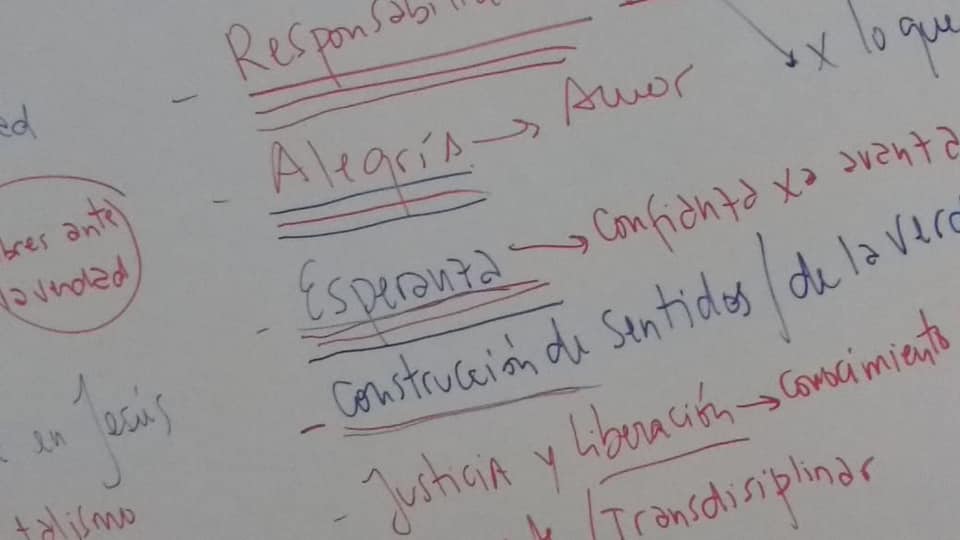 - Responsabili
x lo que
- Alegría → Amor
- Esperanza → Confianza xa avanza
- Construcción de sentidos / de la verd
- Justicia y Liberación → Conocimiento
/ Transdisiplinar
ed
bres ante
la verdad
en Jesús
talismo